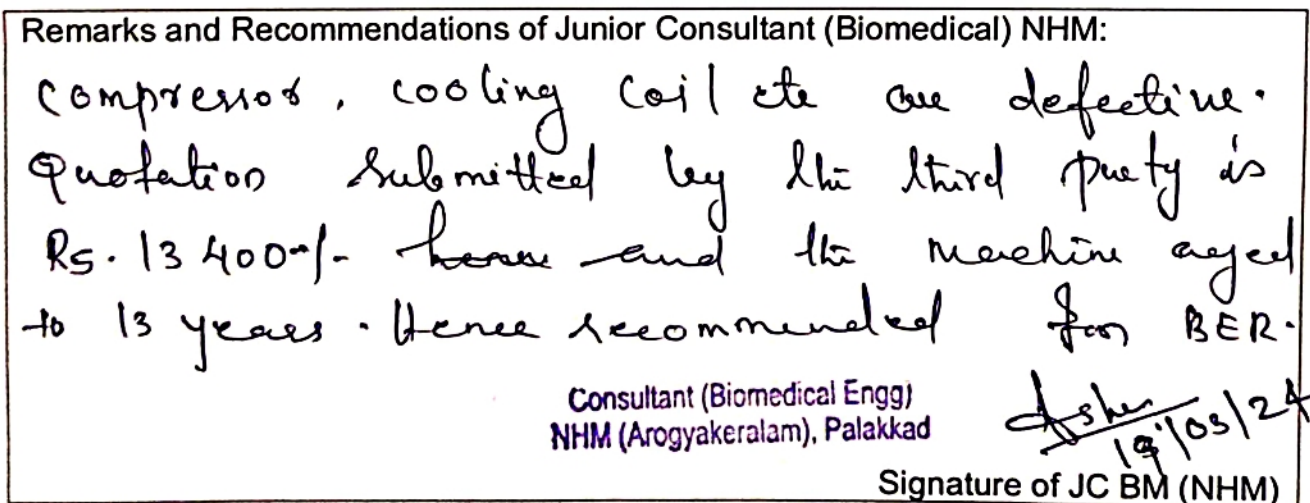 Remarks and Recommendations of Junior Consultant (Biomedical) NHM:
Compressor, cooling coil etc are defective.
Quotation submitted by the third party is
Rs. 13400-/- hence and the machine aged
to 13 years. Hence recommended for BER.
Consultant (Biomedical Engg)
NHM (Arogyakeralam), Palakkad
/03/24
Signature of JC BM (NHM)